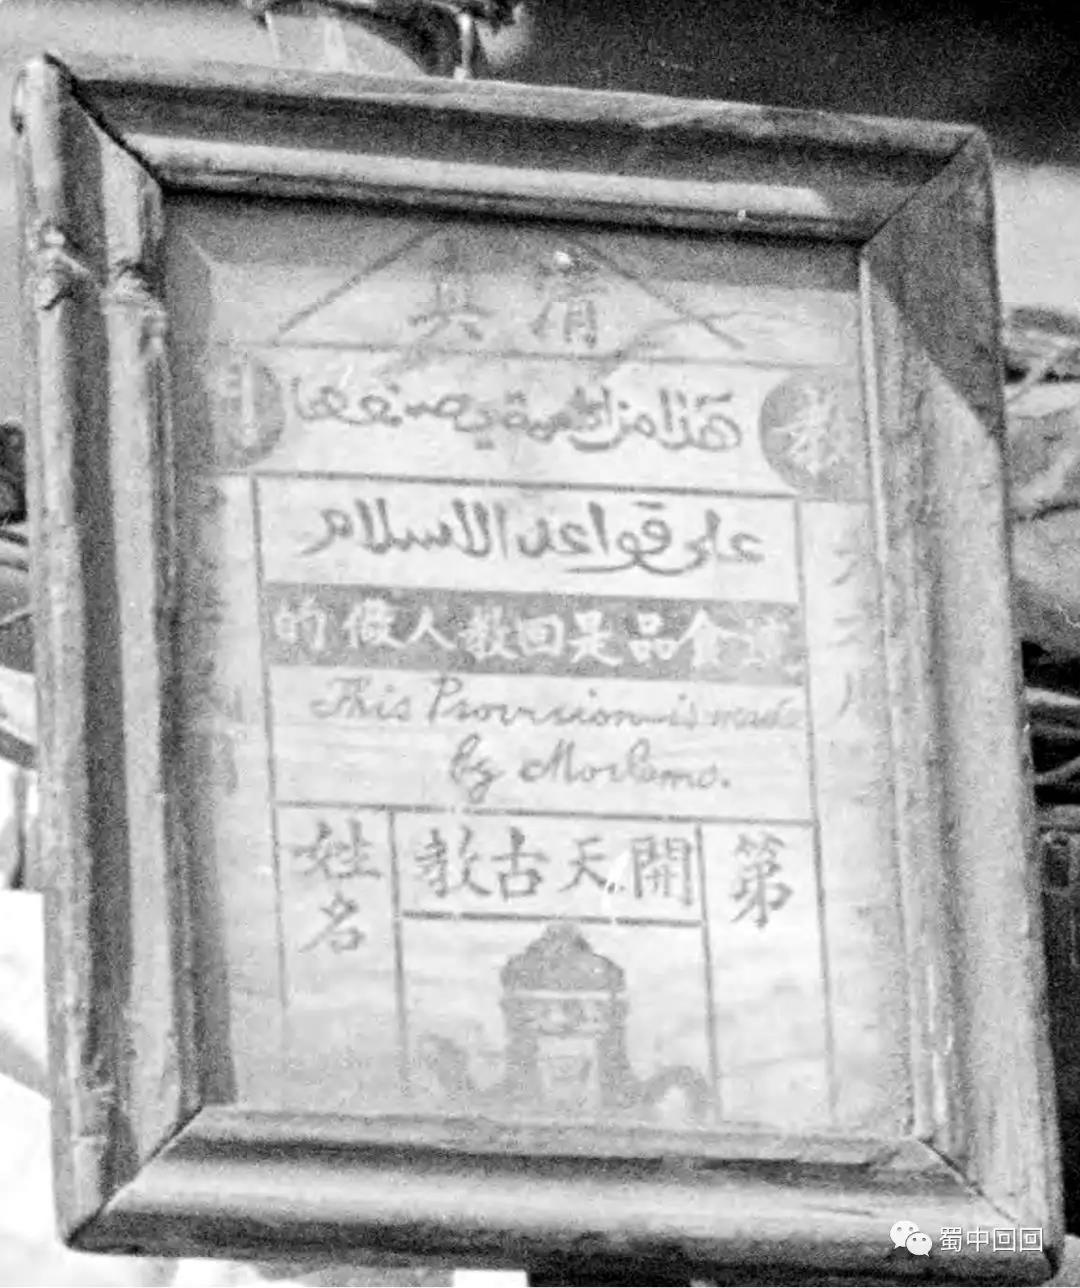 清真
教
هذا من اطعمة يصنعها
على قواعد الاسلام
這食品是回教人做的
This Provision is made
by Moslems.
第
開天古教
姓名
蜀中回回